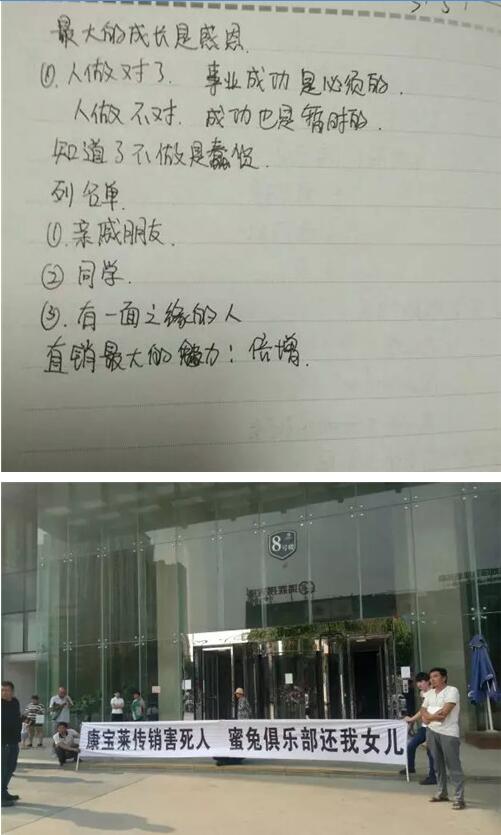 最大的成长是感恩.
①.人做对了. 事业成功是必须的.
人做不对. 成功也是暂时的.
知道了不做是蠢货.
列名单.
①.亲戚朋友.
② 同学.
③. 有一面之缘的人
直销最大的魅力：倍增.
8号楼
康宝莱传销害死人 蜜兔俱乐部还我女儿